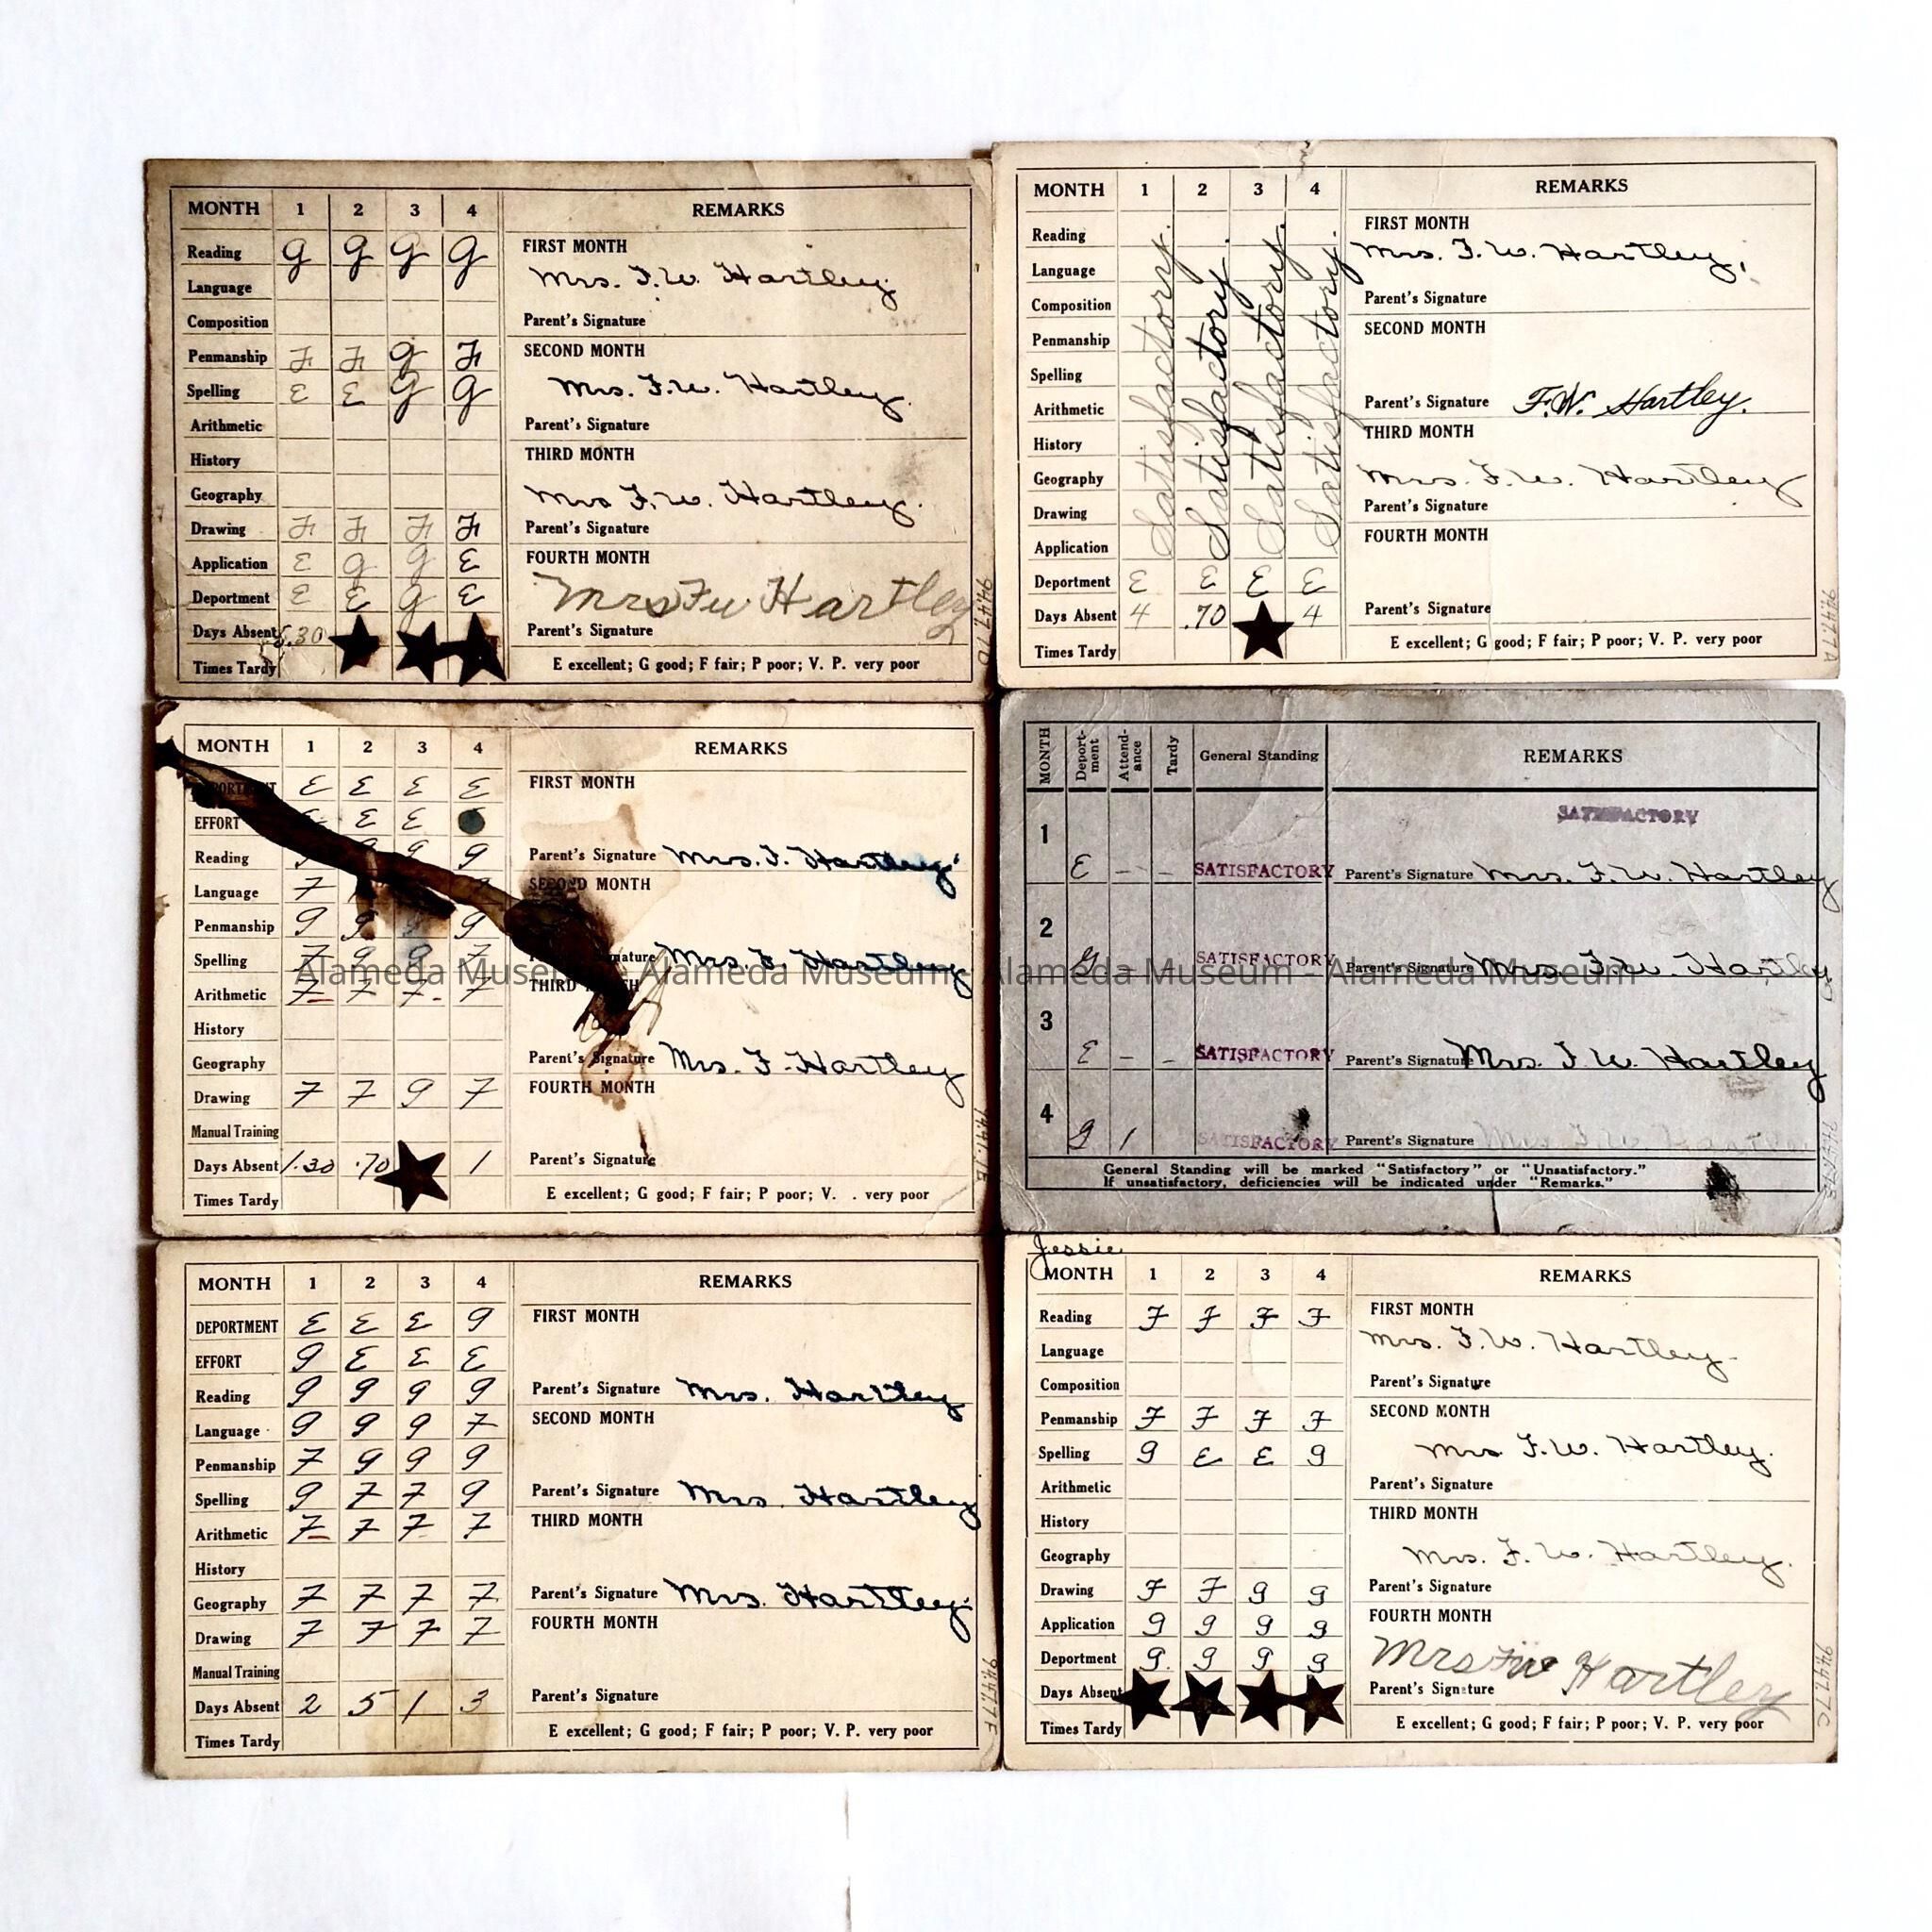 MONTH 1 2 3 4 REMARKS
Reading g g g g FIRST MONTH
Mrs. F.W. Hartley.
Language
Composition Parent's Signature
Penmanship F F g F SECOND MONTH
Spelling E E g g Mrs. F.W. Hartley.
Arithmetic Parent's Signature
History THIRD MONTH
Geography Mrs F.W. Hartley.
Drawing F F F F Parent's Signature
Application E g g E FOURTH MONTH
Deportment E E g E Mrs F W Hartley
Days Absent .30 Parent's Signature
Times Tardy E excellent; G good; F fair; P poor; V. P. very poor
MONTH 1 2 3 4 REMARKS
FIRST MONTH
Reading Mrs. F.W. Hartley.
Language
Composition Parent's Signature
Penmanship SECOND MONTH
Spelling
Arithmetic Parent's Signature F.W. Hartley.
History THIRD MONTH
Geography Mrs. F.W. Hartley
Drawing Parent's Signature
Satisfactory. Satisfactory. Satisfactory. Satisfactory.
Application FOURTH MONTH
Deportment E E E E
Days Absent 4 .70 4 Parent's Signature
Times Tardy E excellent; G good; F fair; P poor; V. P. very poor
9447.7A
MONTH 1 2 3 4 REMARKS
E E E E FIRST MONTH
EFFORT E E
Reading g g g Parent's Signature Mrs. F. Hartley.
Language F SECOND MONTH
Penmanship g g g
Spelling F g g F Mrs. F. Hartley
Arithmetic F F F F THIRD MONTH
History
Geography Parent's Signature Mrs. F. Hartley
Drawing F F g F FOURTH MONTH
Manual Training
Days Absent 1.30 .70 1 Parent's Signature
Times Tardy E excellent; G good; F fair; P poor; V. . very poor
MONTH Deport-ment Attend-ance Tardy General Standing REMARKS
SATISFACTORY
1 E – – SATISFACTORY Parent's Signature Mrs. F.W. Hartley
2 g 1 – SATISFACTORY Parent's Signature Mrs. F.W. Hartley
3 E – – SATISFACTORY Parent's Signature Mrs. F.W. Hartley
4 g 1 SATISFACTORY Parent's Signature
General Standing will be marked "Satisfactory" or "Unsatisfactory."
If unsatisfactory, deficiencies will be indicated under "Remarks."
Alameda Museum - Alameda Museum - Alameda Museum - Alameda Museum
MONTH 1 2 3 4 REMARKS
DEPORTMENT E E E g FIRST MONTH
EFFORT g E E E
Reading g g g g Parent's Signature Mrs. Hartley
Language g g g F SECOND MONTH
Penmanship F g g g
Spelling g F F g Parent's Signature Mrs. Hartley
Arithmetic F F F F THIRD MONTH
History
Geography F F F F Parent's Signature Mrs. Hartley.
Drawing F F F F FOURTH MONTH
Manual Training
Days Absent 2 5 1 3 Parent's Signature
Times Tardy E excellent; G good; F fair; P poor; V. P. very poor
9447.7F
Jessie
MONTH 1 2 3 4 REMARKS
Reading F F F F FIRST MONTH
Language Mrs. F.W. Hartley
Composition Parent's Signature
Penmanship F F F F SECOND MONTH
Spelling g E E g Mrs F.W. Hartley.
Arithmetic Parent's Signature
History THIRD MONTH
Geography Mrs. F.W. Hartley.
Drawing F F g g Parent's Signature
Application g g g g FOURTH MONTH
Deportment g g g g Mrs F W Hartley
Days Absent Parent's Signature
Times Tardy E excellent; G good; F fair; P poor; V. P. very poor
9447.7C